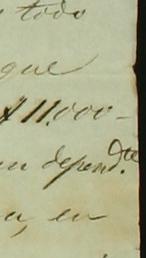 todo
que
$ 11.000-
depend.te
en